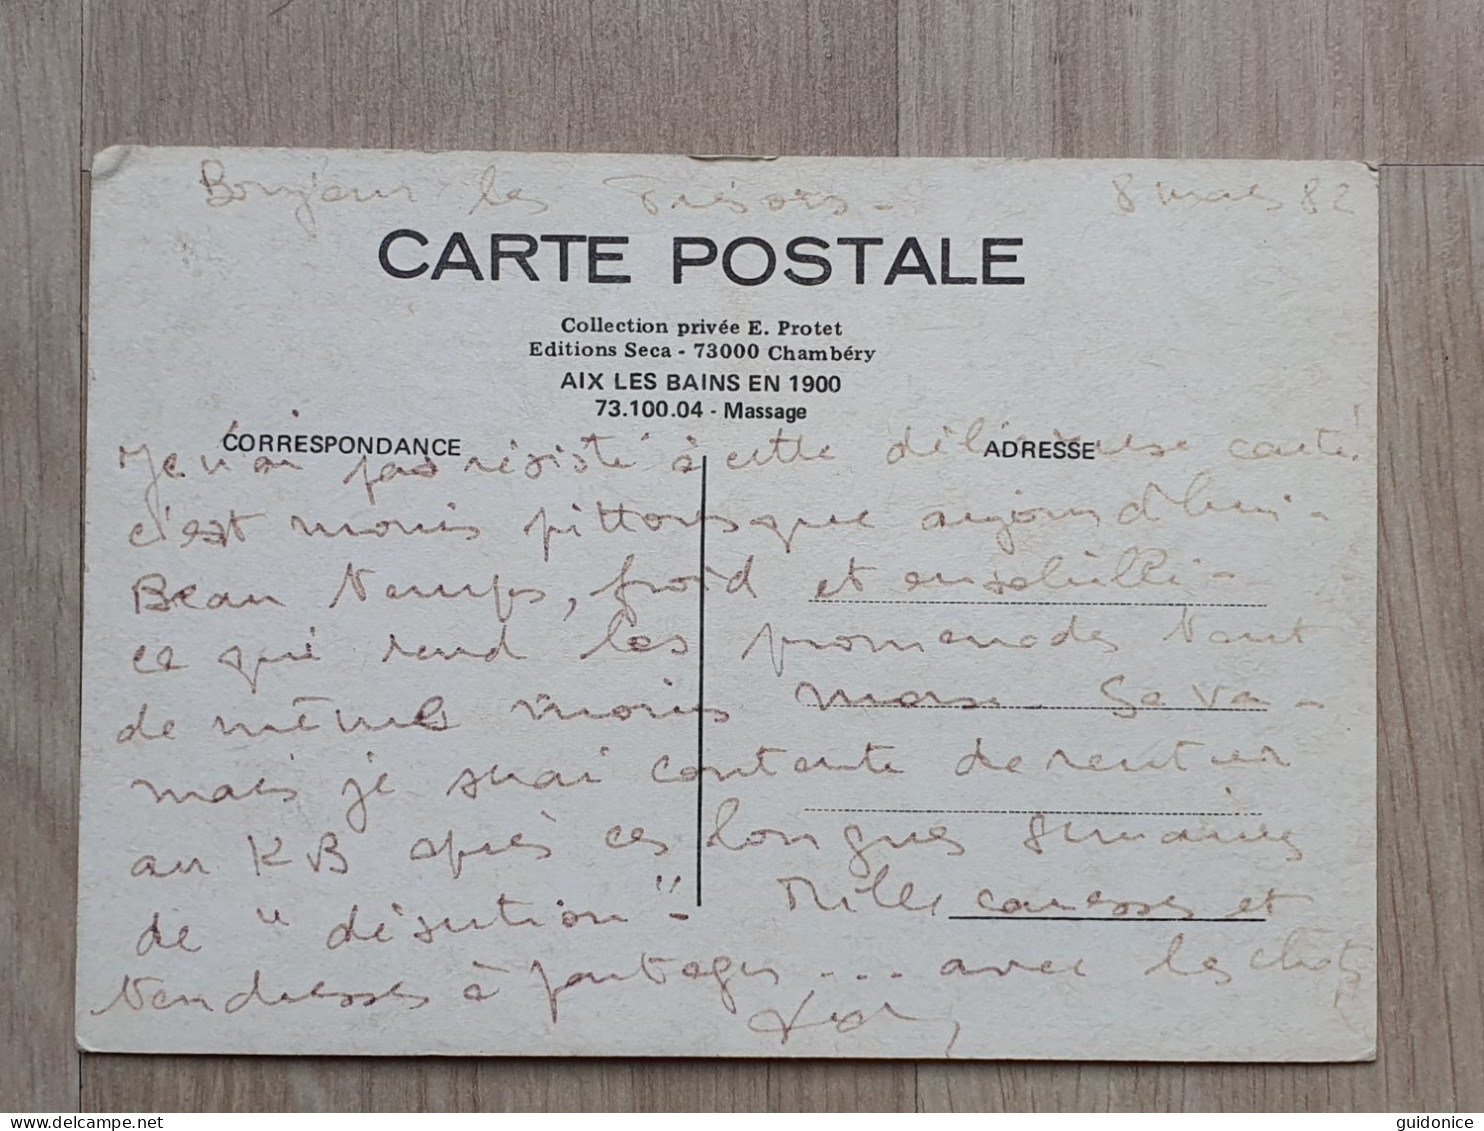 Bonjour les Trésors - 8 mars 82
CARTE POSTALE
Collection privée E. Protet
Editions Seca - 73000 Chambéry
AIX LES BAINS EN 1900
73.100.04 - Massage
CORRESPONDANCE ADRESSE
Je n'ai pas résisté à cette délicieuse carte!
c'est moins pittoresque aujourd'hui -
Beau temps, froid et ensoleillé -
ce qui rend les promenades tout
de même moins moroses. Ca va -
mais je serai contente de rentrer
au KB après ces longues semaines
de "désertion" - Mille caresses et
tendresses à partager ... avec les chats
guidonice